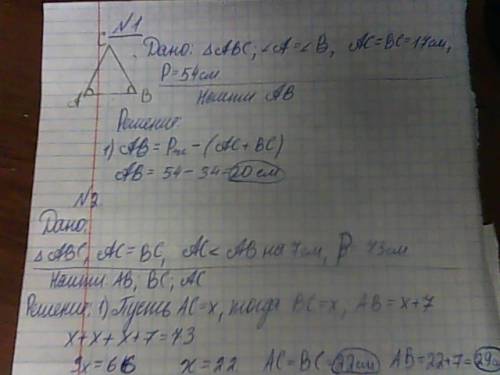 №1
C
Дано: △ABC; ∠A=∠B, AC=BC=17см,
P=54см
A B
Найти AB
Решение:
1) AB = P△ − (AC + BC)
AB = 54 − 34 = 20 см
№2
Дано:
△ABC, AC=BC, AC < AB на 7см, P 73см
Найти AB, BC, AC
Решение: 1) Пусть AC=x, тогда BC=x, AB=x+7
x+x+x+7=73
3x=66 x=22 AC=BC=22см AB=22+7=29см